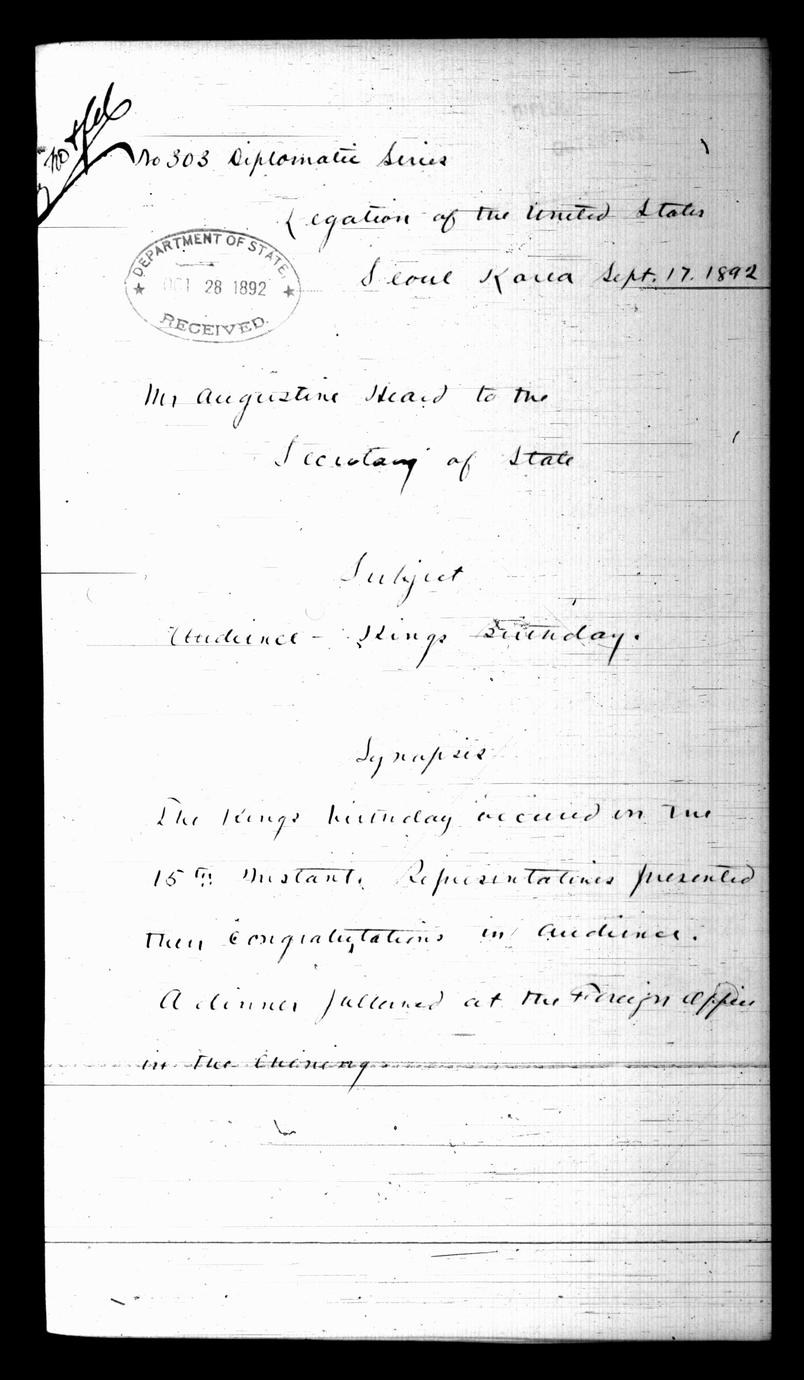 No 303 Diplomatic Series
Legation of the United States
Seoul Korea Sept. 17. 1892
DEPARTMENT OF STATE.
OCT 28 1892
RECEIVED.
Mr Augustine Heard to the
Secretary of State
Subject
Audience – Kings Birthday.
Synopsis
The Kings birthday occured on the
15th Instant. Representatives presented
their Congratulations in audience.
A dinner followed at the Foreign Office
in the evening